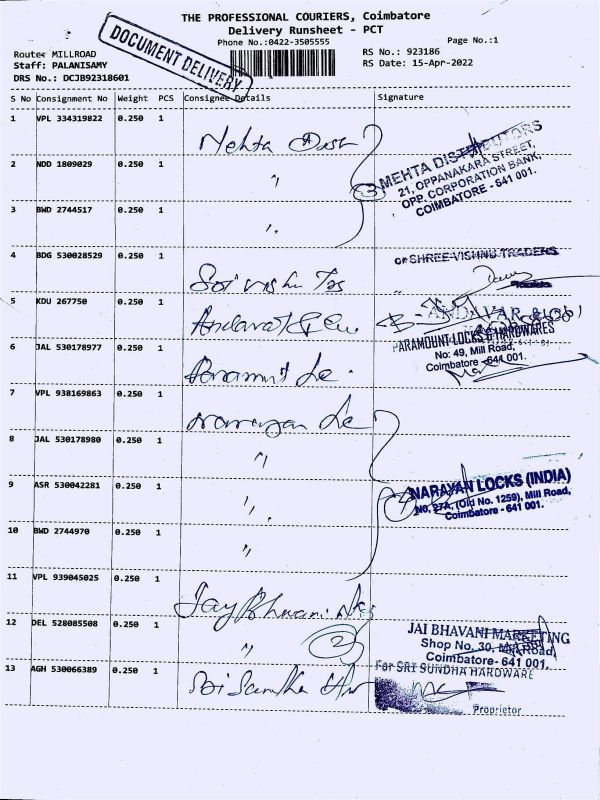 THE PROFESSIONAL COURIERS, Coimbatore
Delivery Runsheet - PCT
Phone No.:0422-3505555
Page No.:1
DOCUMENT DELIVERY
Route: MILLROAD
RS No.: 923186
Staff: PALANISAMY
RS Date: 15-Apr-2022
DRS No.: DCJB92318601
S No Consignment No Weight PCS Consignee Details Signature
1 VPL 334319822 0.250 1
Nehta
MEHTA DISTRIBUTORS
21, OPPANAKARA STREET,
OPP. CORPORATION BANK,
COIMBATORE - 641 001.
2 NDD 1809029 0.250 1 〃 3
3 BWD 2744517 0.250 1 〃
4 BDG 530028529 0.250 1
Sri vishnu
For SHREE VISHNU TRADERS
5 KDU 267750 0.250 1
ANDAVAR
6 JAL 530178977 0.250 1
PARAMOUNT LOCKS & HARDWARES
No: 49, Mill Road,
Coimbatore - 641 001.
7 VPL 938169863 0.250 1
Narayan
8 JAL 530178980 0.250 1 〃
9 ASR 530042281 0.250 1 〃 4
NARAYAN LOCKS (INDIA)
No, 27A, (Old No. 1259), Mill Road,
Coimbatore - 641 001.
10 BWD 2744970 0.250 1 〃
11 VPL 939045025 0.250 1
Jay Bhwani
12 DEL 528085508 0.250 1 〃 2
JAI BHAVANI MARKETING
Shop No. 30, Mill Road,
Coimbatore- 641 001,
13 AGH 530066389 0.250 1
Sri
For SRI SUNDHA HARDWARE
Proprietor